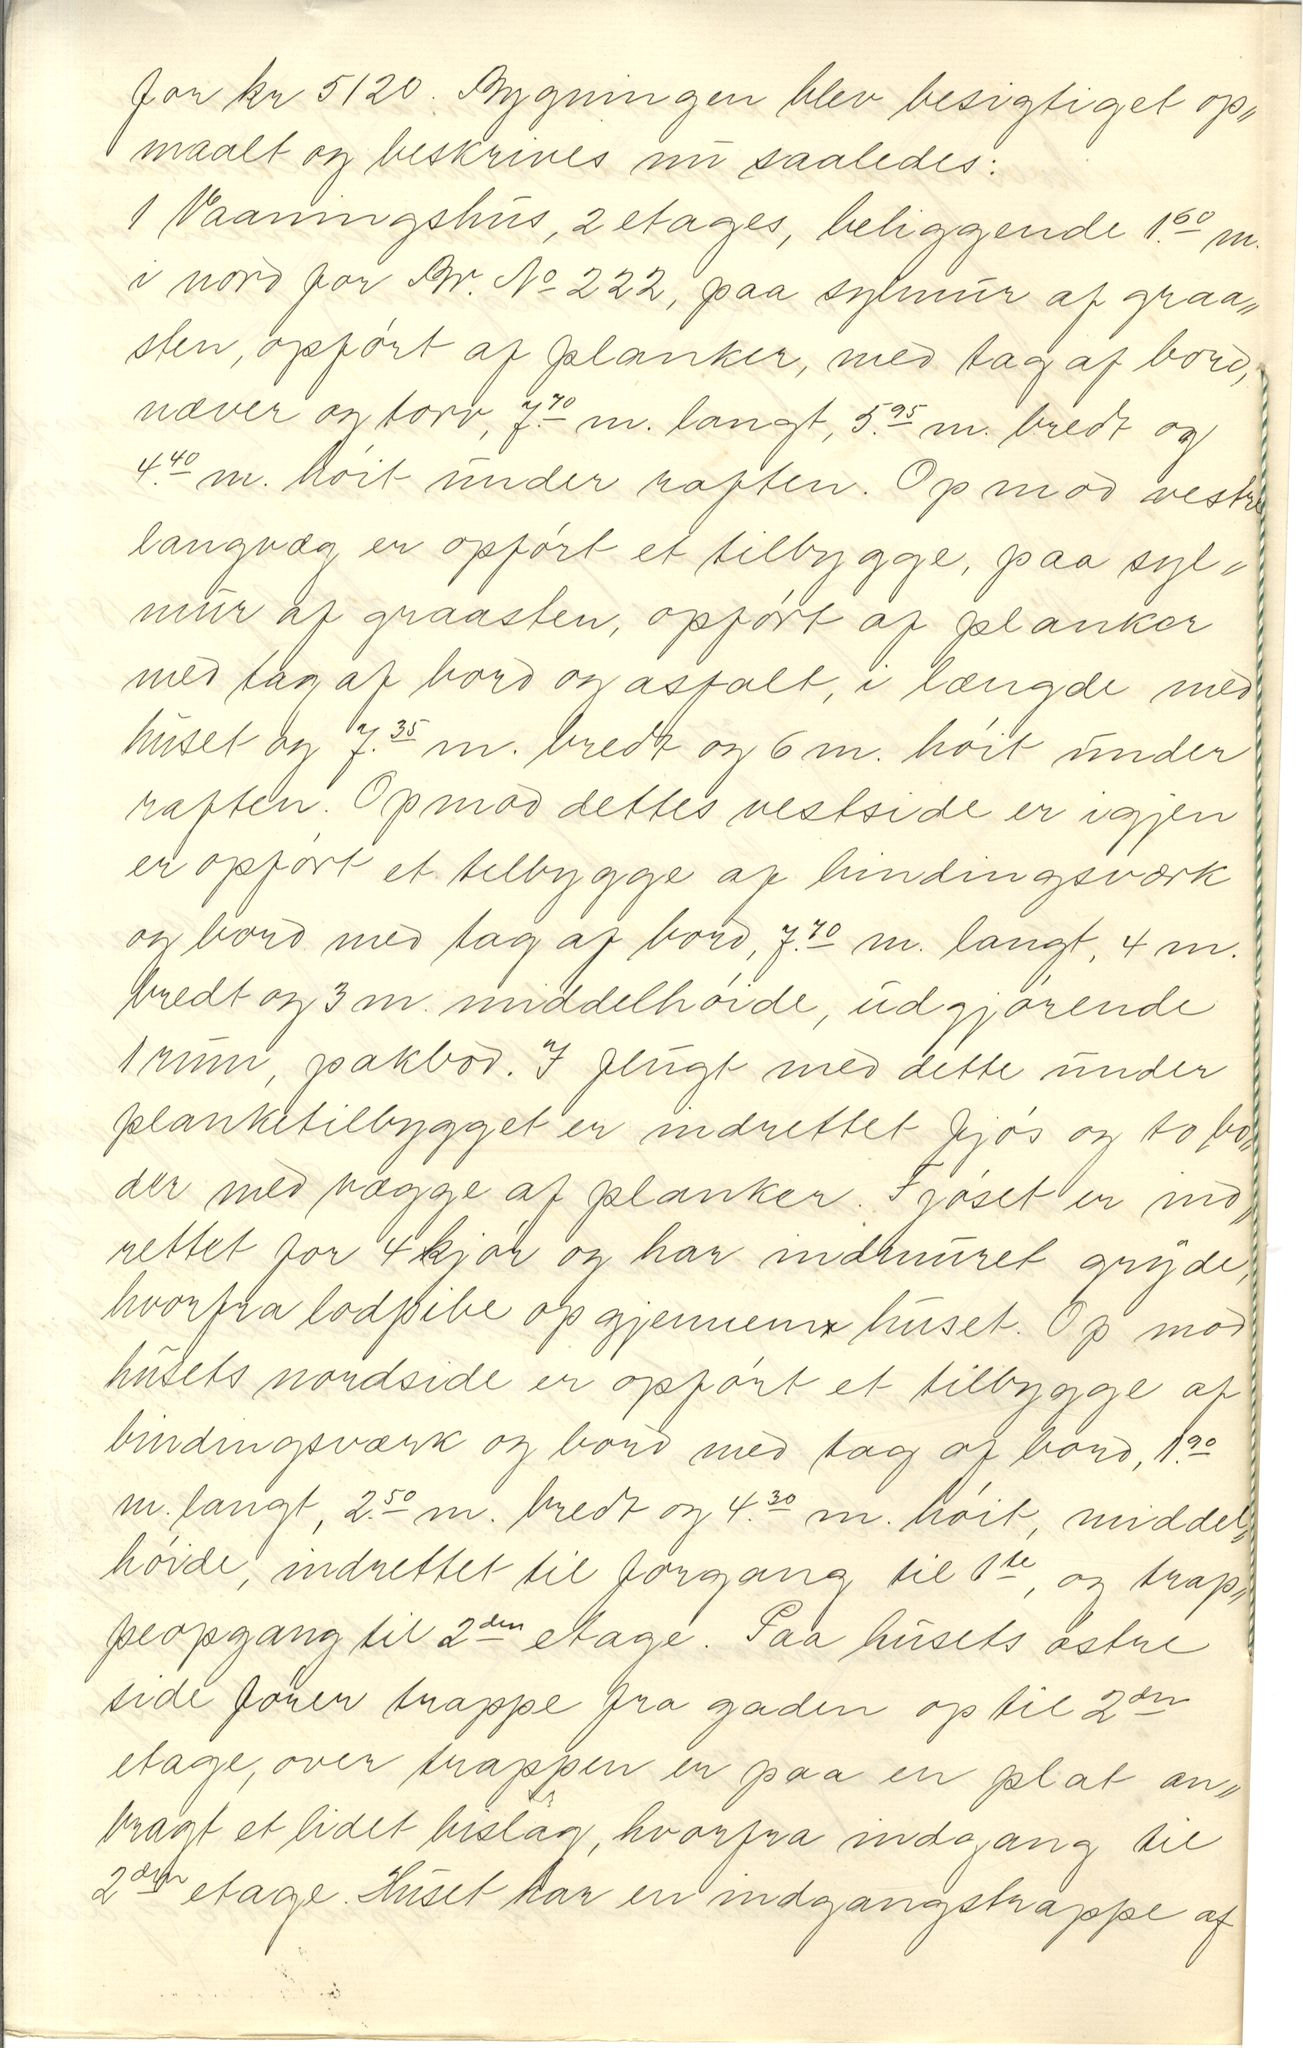 for kr 5120. Bygningen blev besigtiget op„
maalt og beskrives nu saaledes:
1 Vaaningshus, 2 etages, beliggende 1.60 m.
i nord for Br. No 222, paa sylmur af graa„
sten, opført af planker, med tag af bord,
næver og torv, 7.70 m. langt, 5.95 m. bredt og
4.40 m. høit under raften. Op mod vestre
langvæg er opført et tilbygge, paa syl„
mur af graasten, opført af planker
med tag af bord og asfalt, i længde med
huset og 7.35 m. bredt og 6 m. høit under
raften. Op mod dettes vestside er igjen
er opført et tilbygge af bindingsværk
og bord med tag af bord, 7.70 m. langt, 4 m.
bredt og 3 m. middelhøide, udgjørende
1 rum, pakbod. I flugt med dette under
planketilbygget er indrettet fjøs og to bo„
der med vægge af planker. Fjøset er ind„
rettet for 4 kjør og har indmuret gryde,
hvorfra lodpibe op gjennem huset. Op mod
husets nordside er opført et tilbygge af
bindingsværk og bord med tag af bord, 1.90
m. langt, 2.50 m. bredt og 4.30 m. høit, middel„
høide, indrettet til forgang til 1te, og trap„
peopgang til 2den etage. Paa husets østre
side fører trappe fra gaden op til 2den
etage, over trappen er paa en plat an„
bragt et lidet bislag, hvorfra indgang til
2den etage. Huset har en indgangstrappe af